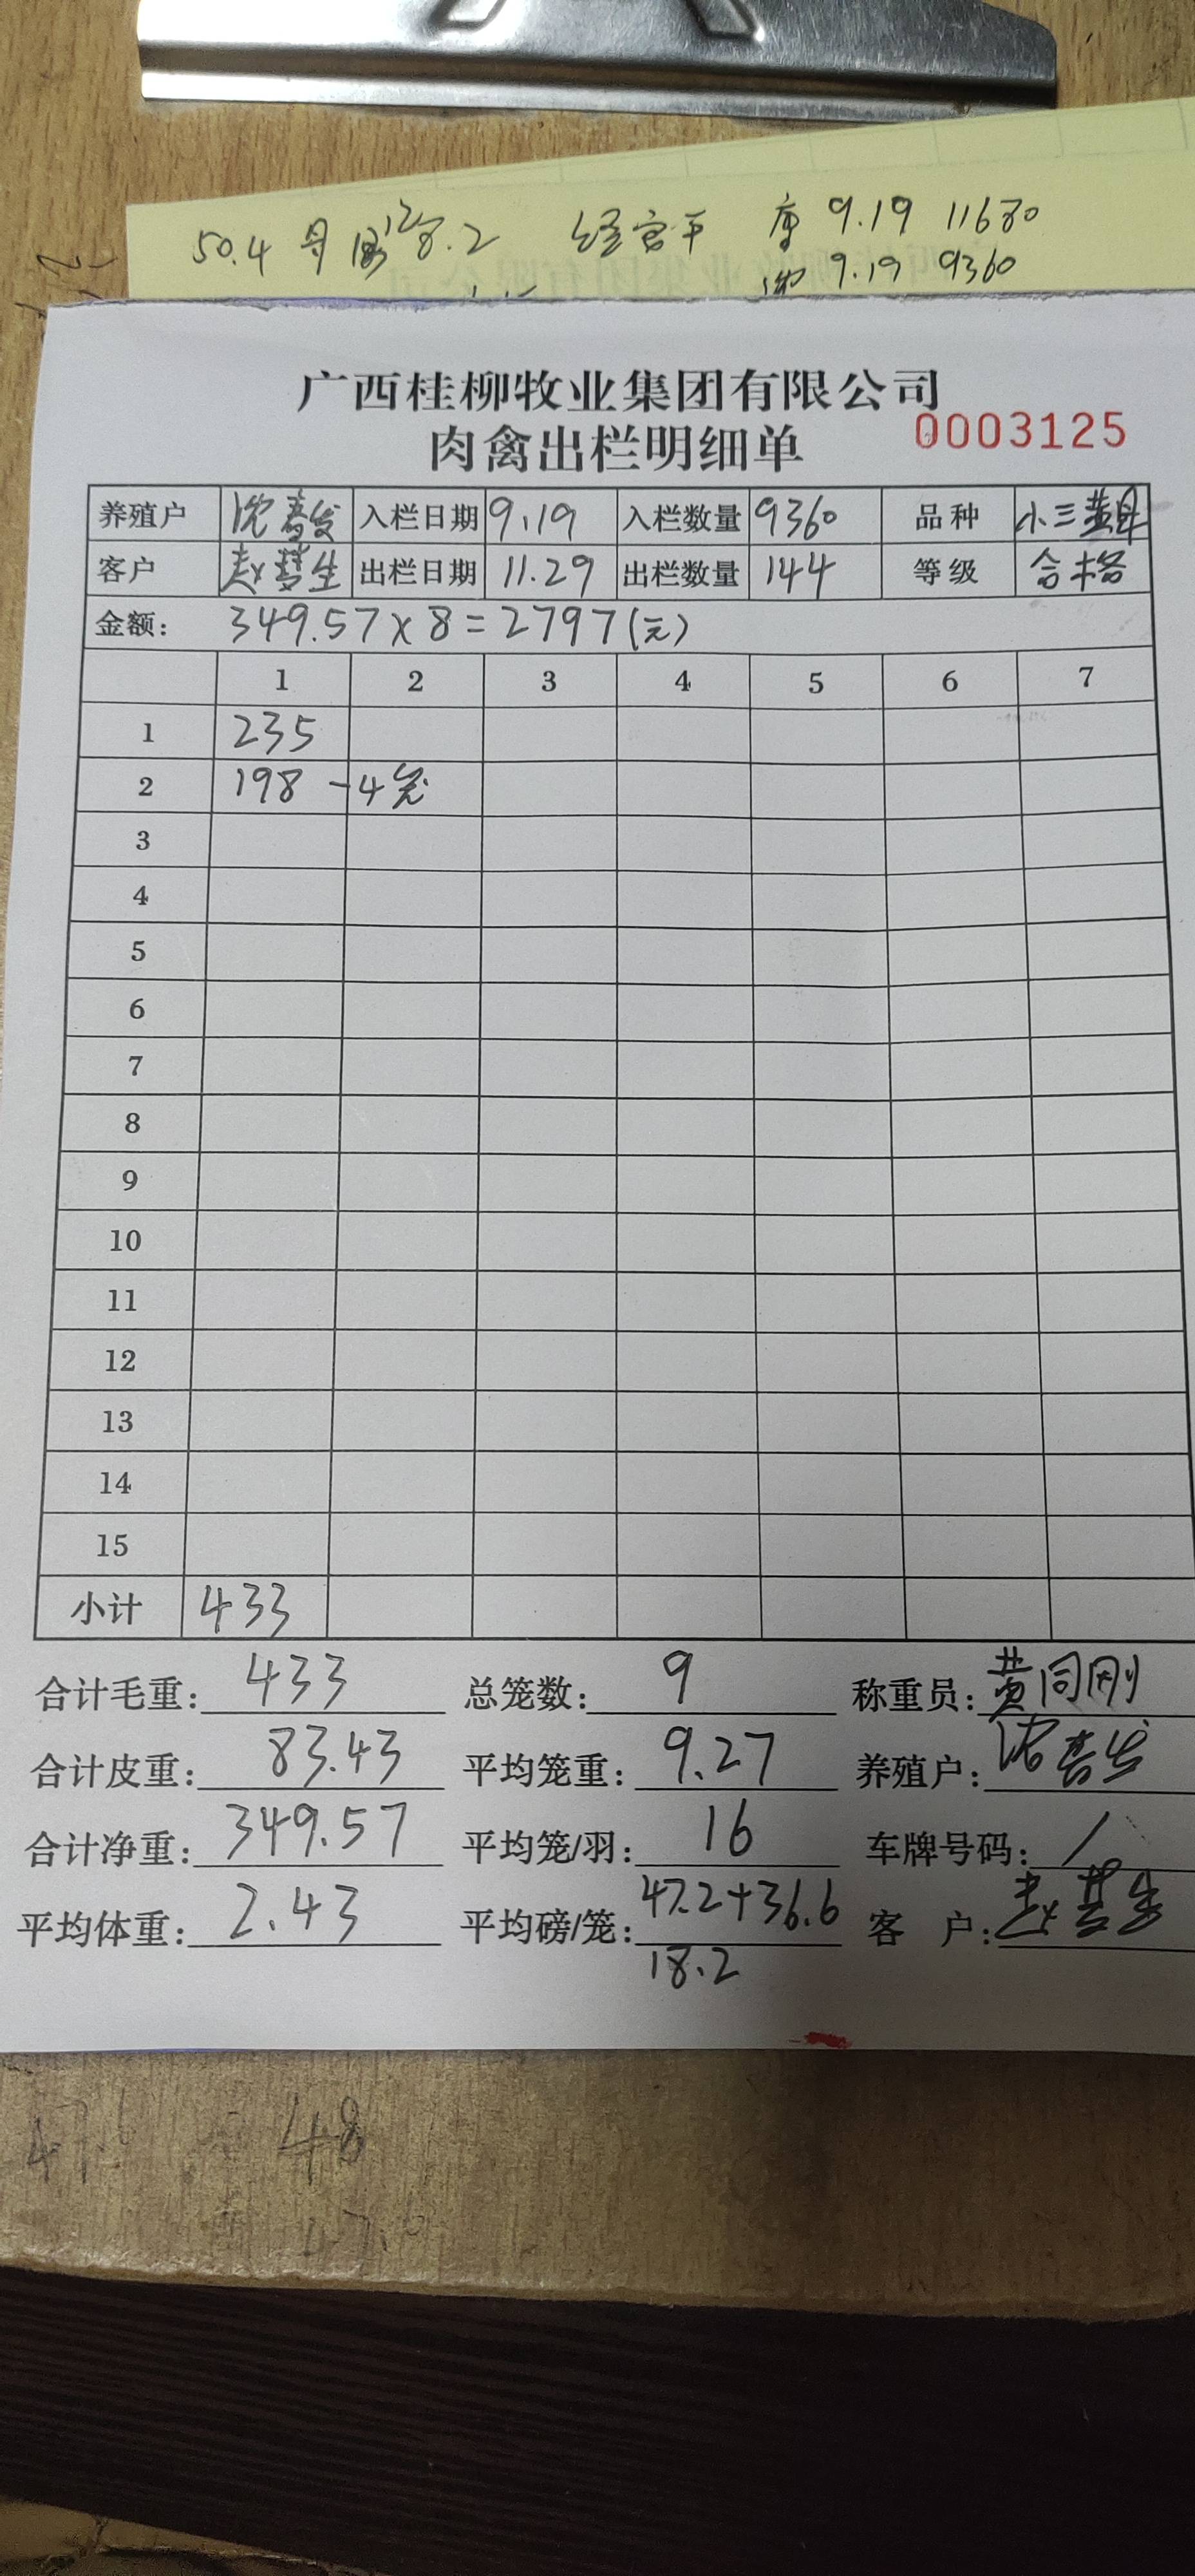 50.4 母 8.2 9.19 11680
9.19 9360
广西桂柳牧业集团有限公司
肉禽出栏明细单 0003125
养殖户 沈寿发 入栏日期 9.19 入栏数量 9360 品种 小三黄母
客户 赵慧生 出栏日期 11.29 出栏数量 144 等级 合格
金额: 349.57×8=2797(元)
1 2 3 4 5 6 7
1 235
2 198 -4笼
3
4
5
6
7
8
9
10
11
12
13
14
15
小计 433
合计毛重: 433 总笼数: 9 称重员: 黄同刚
合计皮重: 83.43 平均笼重: 9.27 养殖户: 沈寿发
合计净重: 349.57 平均笼/羽: 16 车牌号码: /
平均体重: 2.43 平均磅/笼: 47.2+36.6 客 户: 赵慧生
18.2
48